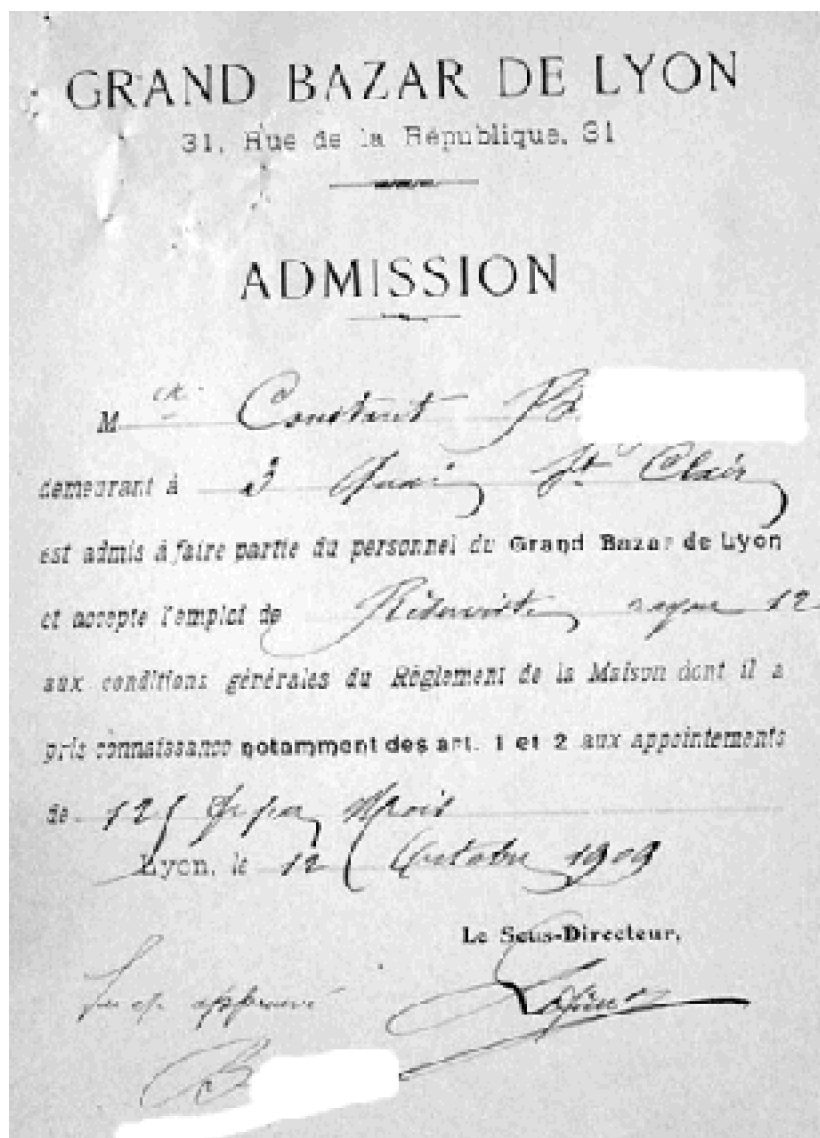 GRAND BAZAR DE LYON
31, Rue de la République, 31
ADMISSION
M Constant
demeurant à 3 Quai St Clair
est admis à faire partie du personnel du Grand Bazar de Lyon
et accepte l'emploi de rayon 12
aux conditions générales du Règlement de la Maison dont il a
pris connaissance notamment des art. 1 et 2 aux appointements
de 125 fr par Mois
Lyon, le 12 Octobre 1909
Le Sous-Directeur,
Lu et approuvé